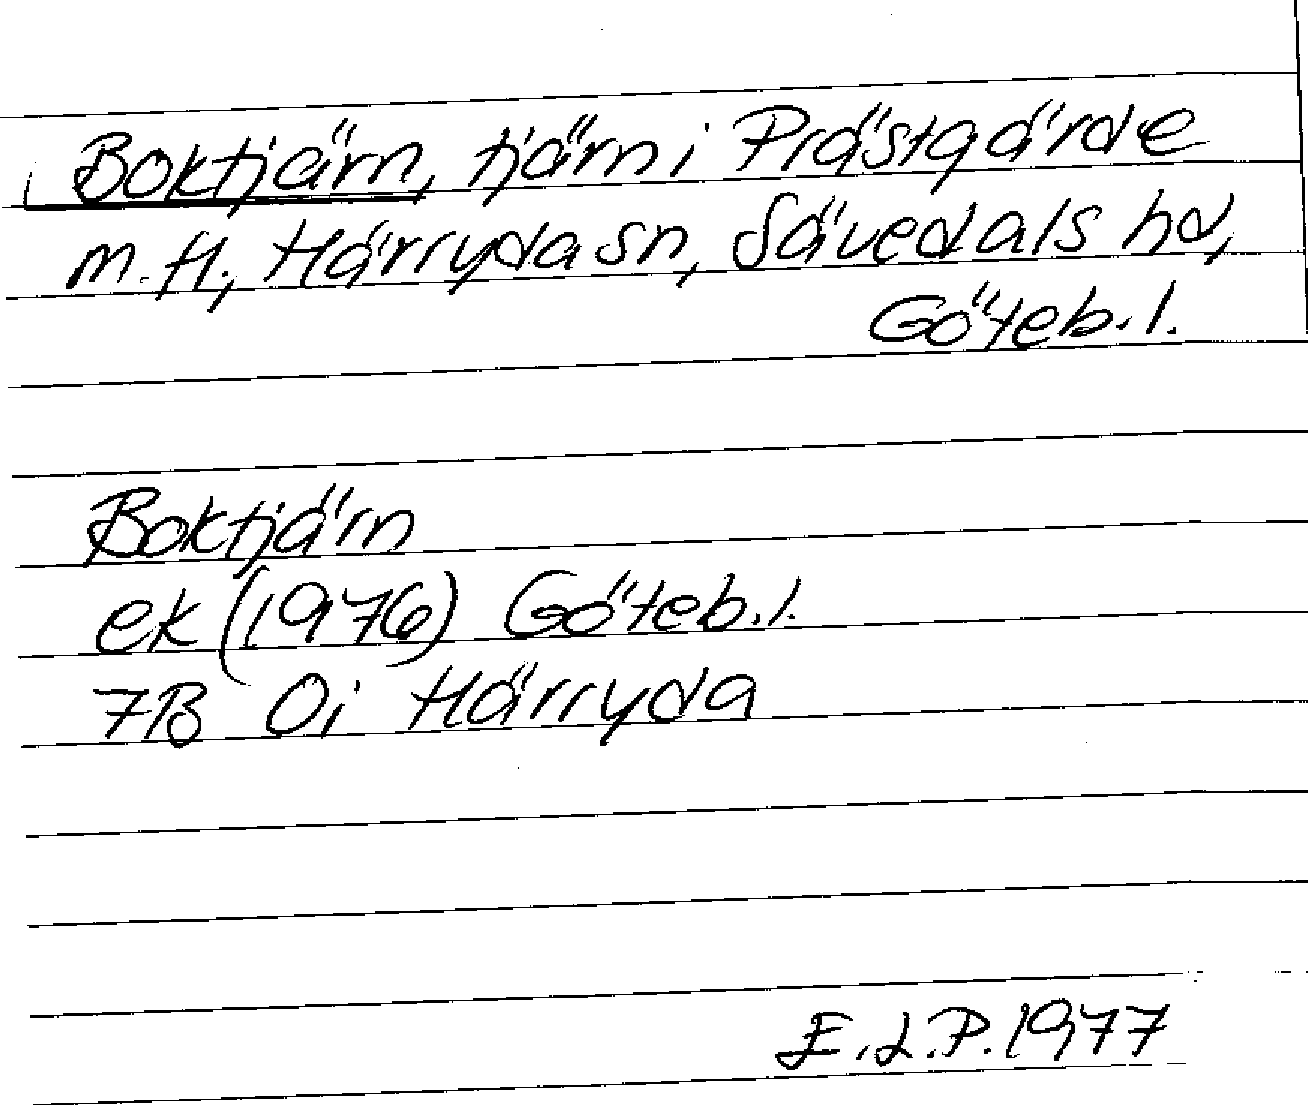 Boktjärn, tjärn i Prästgärde
m. fl., Härryda sn, Sävedals hd,
Göteb. l.
Boktjärn
ek (1976) Göteb. l.
7B 0i Härryda
E.L.P. 1977